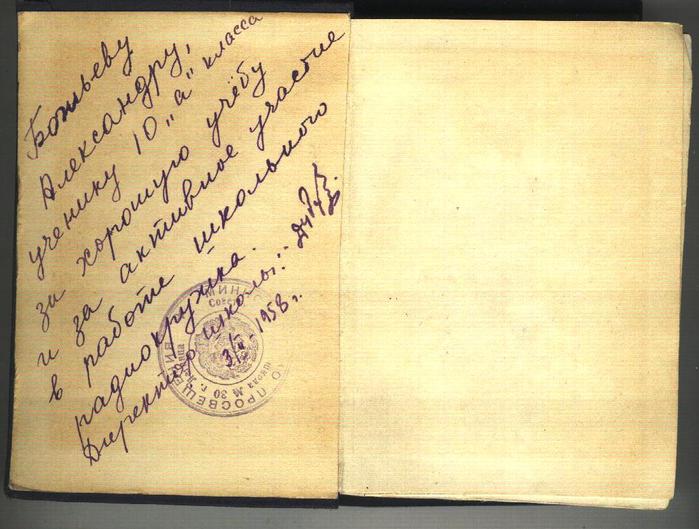 Александру,
ученику 10 "а" класса
за хорошую учёбу
и за активное участие
в работе школьного
радиокружка.
Директор школы:
1958 г.
МИНИС
ПРОСВЕЩЕНИЯ
школа № 30 г.